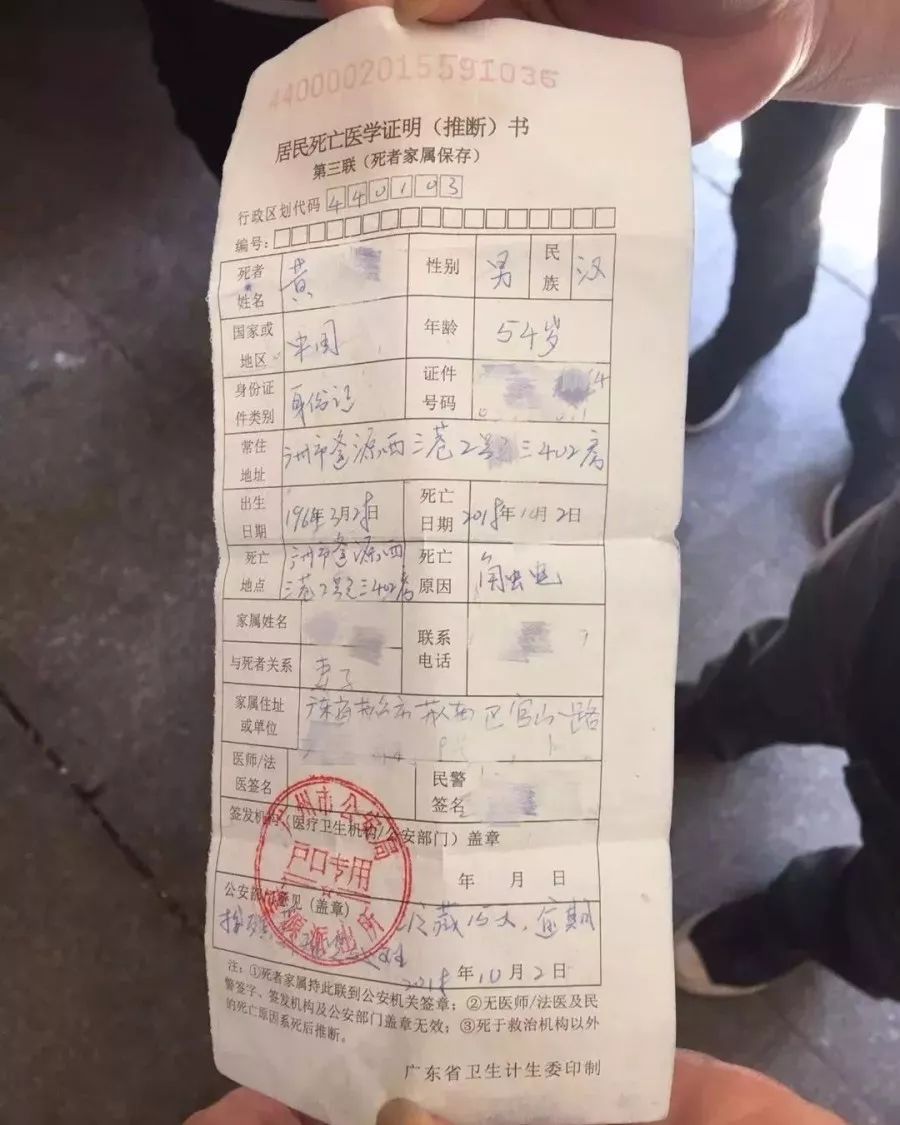 4400002015591036
居民死亡医学证明（推断）书
第三联（死者家属保存）
行政区划代码 440103
编号：
死者姓名 黄 性别 男 民族 汉
国家或地区 中国 年龄 54岁
身份证件类别 身份证 证件号码
常住地址 州市逢源西三巷2号之三402房
出生日期 日 死亡日期 2018年10月2日
死亡地点 州市逢源西三巷2号之三402房 死亡原因 触电
家属姓名 联系电话
与死者关系 妻子
家属住址或单位 区官山路
医师/法医签名 民警签名
签发机构（医疗卫生机构/公安部门）盖章
年 月 日
公安部门意见（盖章）
冷藏15天，逾期
2018年10月2日
广州市公安局
户口专用
逢源派出所
注：①死者家属持此联到公安机关签章；②无医师/法医及民
警签字、签发机构及公安部门盖章无效；③死于救治机构以外
的死亡原因系死后推断。
广东省卫生计生委印制